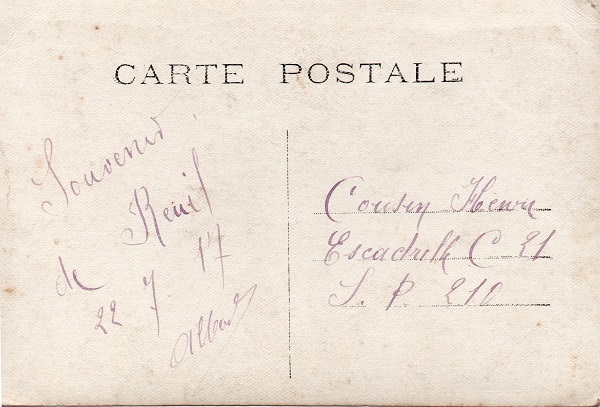 CARTE POSTALE
Souvenir
de Reuil
22 7 17
Cousin Henri
Escadrille C 21
S. P. 210